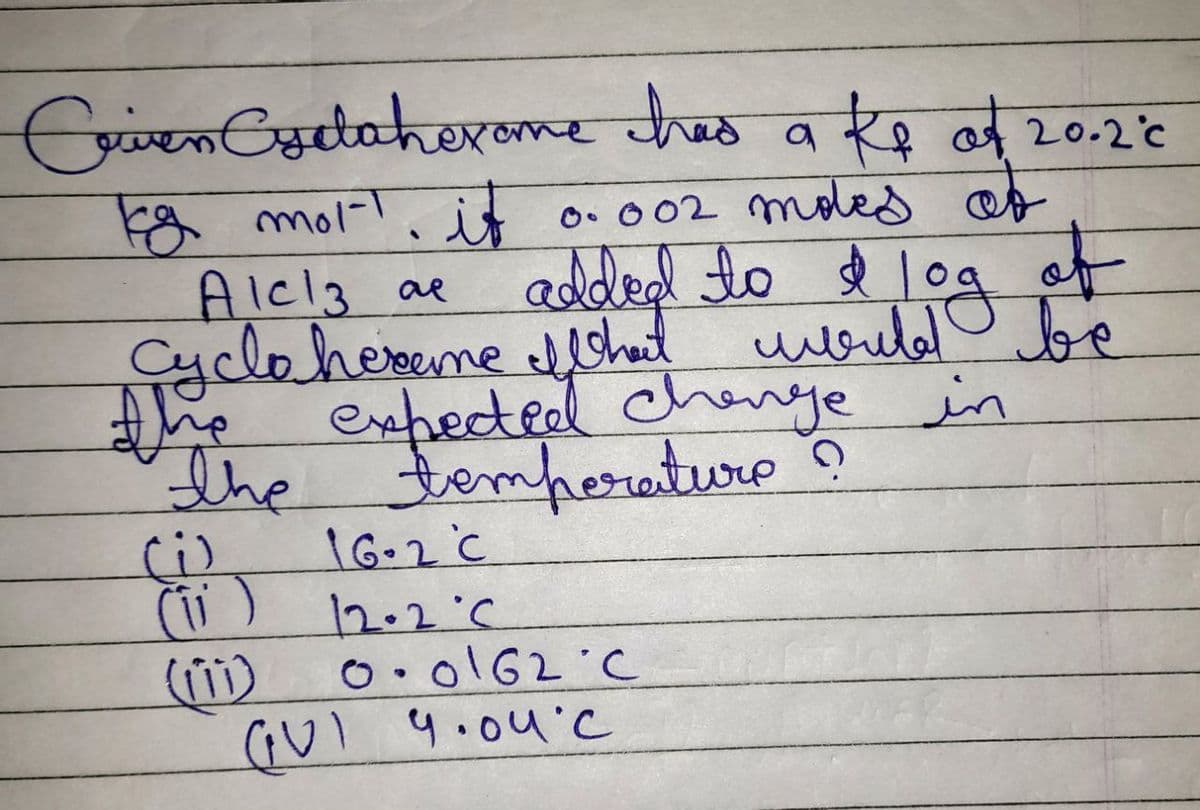 Given Cyclohexame has a Kf of 20.2°C
kg mol-1. if 0.002 moles of
AlCl3 ae added to 10g of
Cyclohexeme What would be
the expected change in
the temperature ?
(i) 16.2°C
(ii) 12.2°C
(iii) 0.0162°C
(iv) 4.04°C